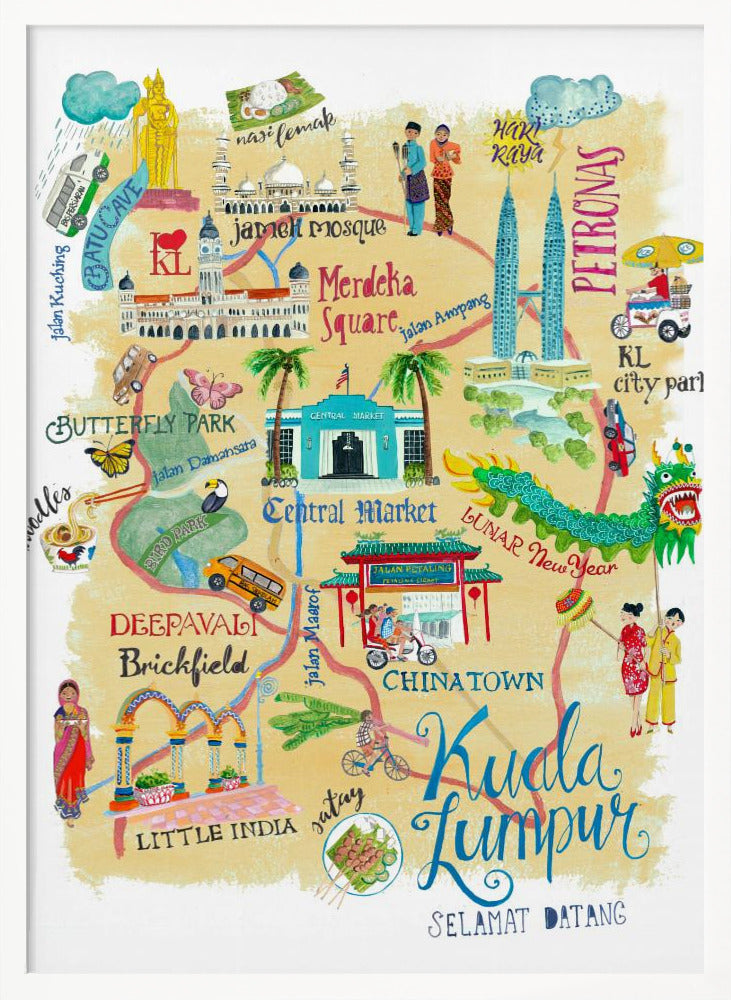 nasi lemak
HARI
RAYA
PETRONAS
BATU CAVE
Jalan Kuching
I
KL
Jameh Mosque
Merdeka
Square
Jalan Ampang
KL
city park
BUTTERFLY PARK
CENTRAL MARKET
Jalan Damansara
noodles
BIRD PARK
Central Market
LUNAR New Year
JALAN PETALING
PETALING STREET
DEEPAVALI
Brickfield
Jalan Maarof
CHINATOWN
LITTLE INDIA
satay
Kuala
Lumpur
SELAMAT DATANG